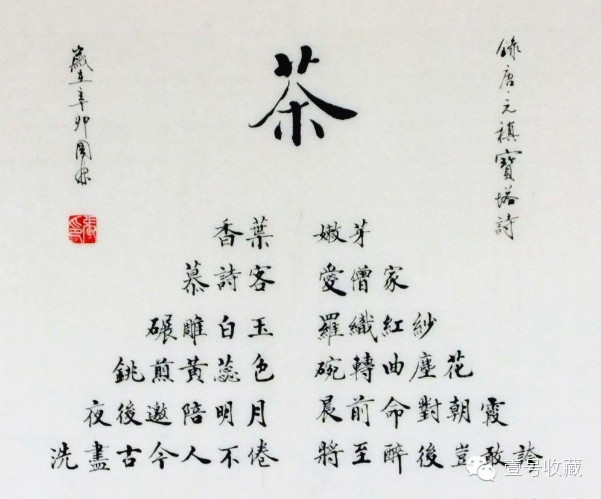 錄唐·元稹寶塔詩
茶
香葉 嫩芽
慕詩客 愛僧家
碾雕白玉 羅織紅紗
銚煎黃蕊色 碗轉曲塵花
夜後邀陪明月 晨前命對朝霞
洗盡古今人不倦 將至醉後豈敢誇
歲在辛卯
壹号收藏